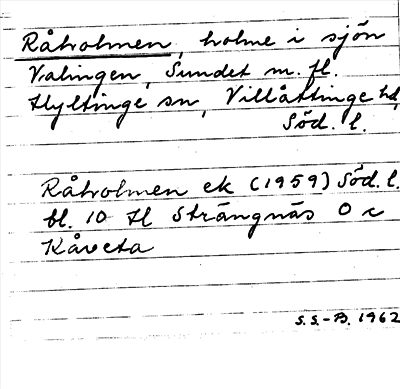 Råholmen, holme i sjön
Valingen, Sundet m. fl.
Hyltinge sn, Villåttinge hd,
Söd. l.
Råholmen ek (1959) Söd. l.
bl. 10 tl Strängnäs O c
Kåveta
S.S.-B. 1962